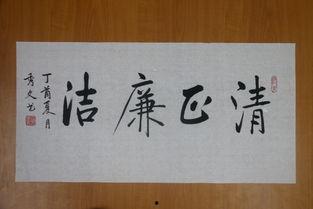 清正廉洁
丁酉夏月
秀文书